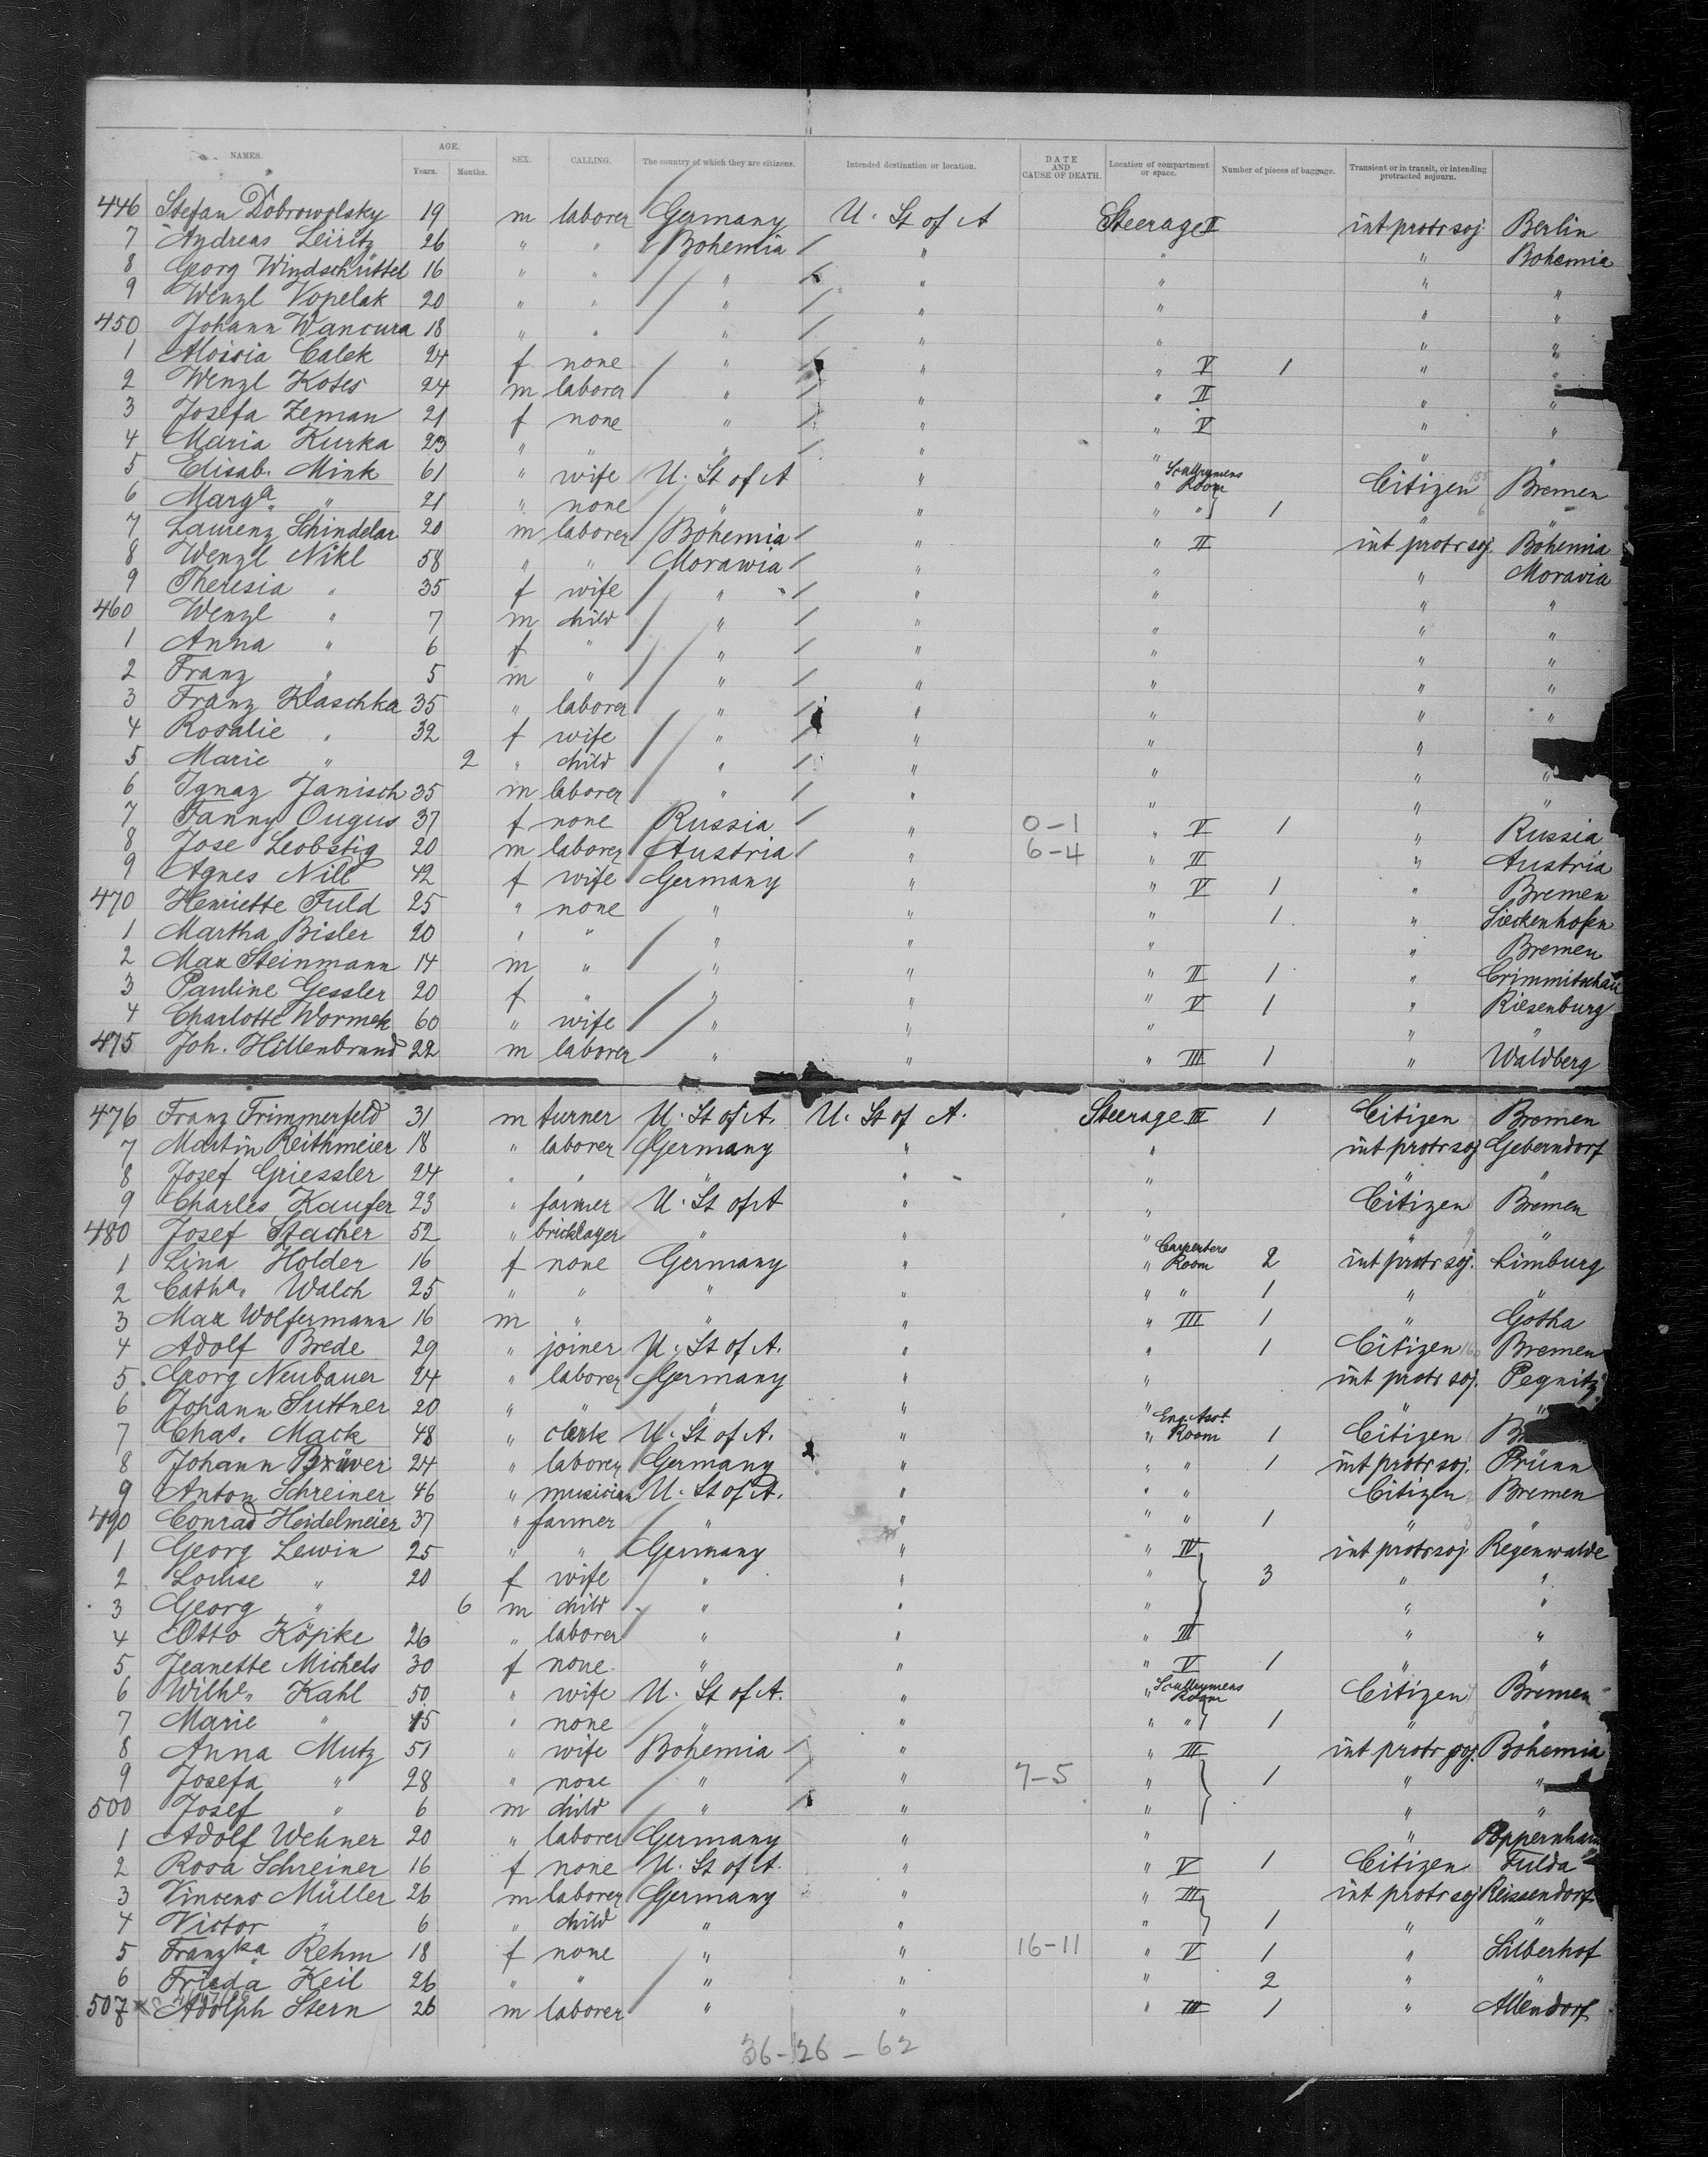 NAMES. AGE. Years. Months. SEX. CALLING. The country of which they are citizens. Intended destination or location. DATE AND CAUSE OF DEATH. Location of compartment or space. Number of pieces of baggage. Transient or in transit, or intending protracted sojourn.
446 Stefan Dobrowolsky 19 m laborer Germany U. St of A Steerage II int protr soj Berlin
7 Andreas Leiritz 26 " " Bohemia " " " Bohemia
8 Georg Windschüttel 16 " " " " " " "
9 Wenzl Vopelak 20 " " " " " " "
450 Johann Wancura 18 " " " " " " "
1 Aloisia Calek 24 f none " " " V 1 " "
2 Wenzl Kotes 24 m laborer " " " II " "
3 Josefa Zeman 21 f none " " " V " "
4 Maria Kurka 23 " " " " " " "
5 Elisab. Mink 61 " wife U. St of A " " Scullrymens Room Citizen 155 Bremen
6 Marga. " 21 " none " " " " 1 " 6 "
7 Laurenz Schindelar 20 m laborer Bohemia " " II int protr soj. Bohemia
8 Wenzl Nikl 58 " " Morawia " " " Moravia
9 Theresia " 35 f wife " " " " "
460 Wenzl " 7 m child " " " " "
1 Anna " 6 f " " " " " "
2 Franz " 5 m " " " " " "
3 Franz Klaschka 35 " laborer " " " " "
4 Rosalie " 32 f wife " " " "
5 Marie " 2 " child " " " " "
6 Ignaz Janisch 35 m laborer " " " " "
7 Fanny Ougus 37 f none Russia " 0-1 " V 1 " Russia
8 Jose Leobstig 20 m laborer Austria " 6-4 " II " Austria
9 Agnes Nill 42 f wife Germany " " V 1 " Bremen
470 Henriette Fuld 25 " none " " " 1. " Sieckenhofen
1 Martha Bisler 20 " " " " " " Bremen
2 Max Steinmann 14 m " " " " II 1 " Crimmitschau
3 Pauline Gessler 20 f " " " " V 1 " Riesenburg
4 Charlotte Wormek 60 " wife " " " " "
475 Joh. Hillenbrand 22 m laborer " " " III 1 " Waldberg
476 Franz Trimmerfeld 31 m turner U. St of A. U. St of A. Steerage III 1 Citizen Bremen
7 Martin Reithmeier 18 " laborer Germany " " int protr soj Geberndorf
8 Josef Griessler 24 " " " " " " "
9 Charles Kaufer 23 " farmer U. St of A " " Citizen Bremen
480 Josef Stacher 52 " bricklayer " " " " 9 "
1 Lina Holder 16 f none Germany " " Carpenters Room 2 int protr soj. Limburg
2 Catha. Walch 25 " " " " " " 1 " "
3 Max Wolfermann 16 m " " " " III 1 " Gotha
4 Adolf Brede 29 " joiner U. St of A. " " 1 Citizen 160 Bremen
5 Georg Neubauer 24 " laborer Germany " " int protr soj. Pegnitz
6 Johann Suttner 20 " " " " " " "
7 Chas. Mack 48 " clerk U. St of A. " " Eng. Asst Room 1 Citizen
8 Johann Brüwer 24 " laborer Germany " " " 1 int protr soj. Prünn
9 Anton Schreiner 46 " musician U. St of A. " " " Citizen Bremen
490 Conrad Heidelmeier 37 " farmer " " " " 1 " 3 "
1 Georg Lewin 25 " " Germany " " IV int protr soj Regenwalde
2 Louise " 20 f wife " " " 3 " "
3 Georg " 6 m child " " " " "
4 Otto Köpke 26 " laborer " " " III " "
5 Jeanette Michels 30 f none " " " V 1 " "
6 Wilhe. Kahl 50 " wife U. St of A. " " Scullrymens Room Citizen Bremen
7 Marie " 15 " none " " " " 1 " "
8 Anna Mutz 51 " wife Bohemia " " III int protr soj. Bohemia
9 Josefa " 28 " none " " 7-5 " 1 " "
500 Josef " 6 m child " " " " "
1 Adolf Wehner 20 " laborer Germany " " " Poppernham
2 Rosa Schreiner 16 f none U. St of A. " " V 1 Citizen Fulda
3 Vincens Müller 26 m laborer Germany " " III int protr soj Reissendorf
4 Victor " 6 " child " " " 1 " "
5 Franzka. Rehm 18 f none " " 16-11 " V 1 " Silberhof
6 Frieda Keil 26 " " " " " 2 " "
507 Adolph Stern 26 m laborer " " " III 1 " Allendorf
36-26-62